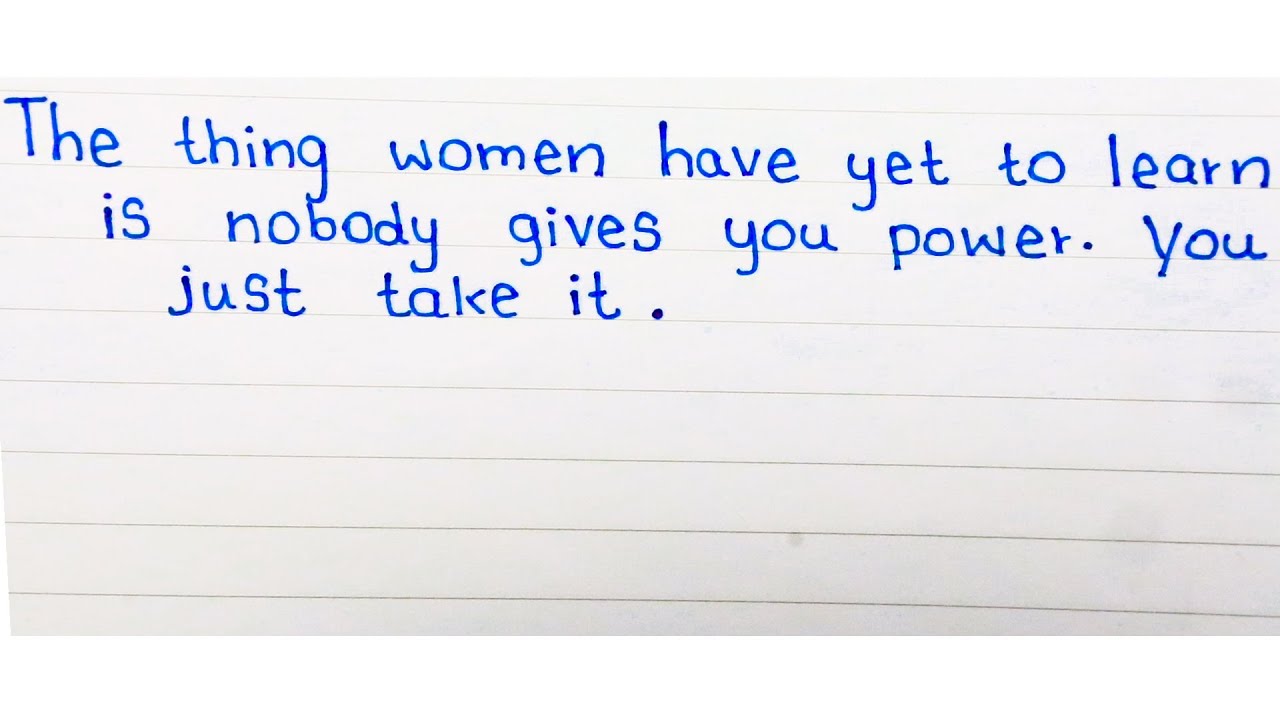 The thing women have yet to learn
is nobody gives you power. You
just take it.